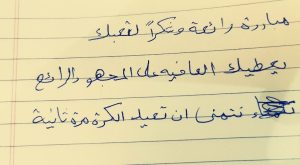 مبادرة رائعة وشكراً لتعبك
يعطيك العافيه على المجهود الرائع
نتمنى ان تعيد الكرة مرة ثانية